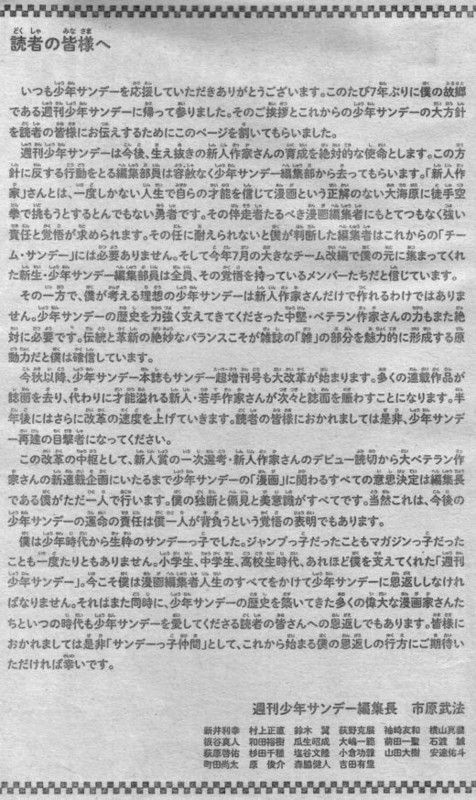 読者の皆様へ
いつも少年サンデーを応援していただきありがとうございます。このたび7年ぶりに僕の故郷
である週刊少年サンデーに帰って参りました。そのご挨拶とこれからの少年サンデーの大方針
を読者の皆様にお伝えするためにこのページを割いてもらいました。
週刊少年サンデーは今後、生え抜きの新人作家さんの育成を絶対的な使命とします。この方
針に反する行動をとる編集部員は容赦なく少年サンデー編集部から去ってもらいます。「新人作
家」さんとは、一度しかない人生で自らの才能を信じて漫画という正解のない大海原に徒手空
拳で挑もうとするとんでもない勇者です。その伴走者たるべき漫画編集者にもとてつもなく強い
責任と覚悟が求められます。その任に耐えられないと僕が判断した編集者はこれからの「チー
ム・サンデー」には必要ありません。そして今年7月の大きなチーム改編で僕の元に集まってくれ
た新生・少年サンデー編集部員は全員、その覚悟を持っているメンバーたちだと信じています。
その一方で、僕が考える理想の少年サンデーは新人作家さんだけで作れるわけではありま
せん。少年サンデーの歴史を力強く支えてきてくださった中堅・ベテラン作家さんの力もまた絶
対に必要です。伝統と革新の絶妙なバランスこそが雑誌の「雑」の部分を魅力的に形成する原
動力だと僕は確信しています。
今秋以降、少年サンデー本誌もサンデー超増刊号も大改革が始まります。多くの連載作品が
誌面を去り、代わりに才能溢れる新人・若手作家さんが次々と誌面を賑わすことになります。半
年後にはさらに改革の速度を上げていきます。読者の皆様におかれましては是非、少年サンデ
ー再建の目撃者になってください。
この改革の中枢として、新人賞の一次選考・新人作家さんのデビュー読切から大ベテラン作
家さんの新連載企画にいたるまで少年サンデーの「漫画」に関わるすべての意思決定は編集長
である僕がただ一人で行います。僕の独断と偏見と美意識がすべてです。当然これは、今後の
少年サンデーの運命の責任は僕一人が背負うという覚悟の表明でもあります。
僕は少年時代から生粋のサンデーっ子でした。ジャンプっ子だったこともマガジンっ子だった
ことも一度たりともありません。小学生、中学生、高校生時代、あれほど僕を支えてくれた「週刊
少年サンデー」。今こそ僕は漫画編集者人生のすべてをかけて少年サンデーに恩返ししなけれ
ばなりません。それはまた同時に、少年サンデーの歴史を築いてきた多くの偉大な漫画家さんた
ちといつの時代も少年サンデーを愛してくださる読者の皆さんへの恩返しでもあります。皆様に
おかれましては是非「サンデーっ子仲間」として、これから始まる僕の恩返しの行方にご期待い
ただければ幸いです。
週刊少年サンデー編集長 市原武法
新井利幸 村上正直 鈴木 翼 荻野克展 袖崎友和 横山真義
根谷真人 和田裕樹 瓜生昭成 大嶋一範 前田一聖 石渡 誠
萩原啓佑 杉田千種 塩谷文隆 小倉功雅 山田大樹 安達佑斗
町田尚太 原 俊介 森脇健人 吉田有里